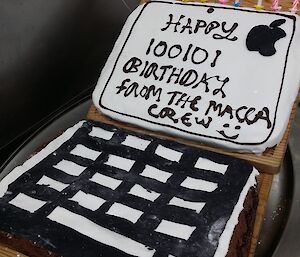 HAPPY
100101
BIRTHDAY
FROM THE MACCA
CREW